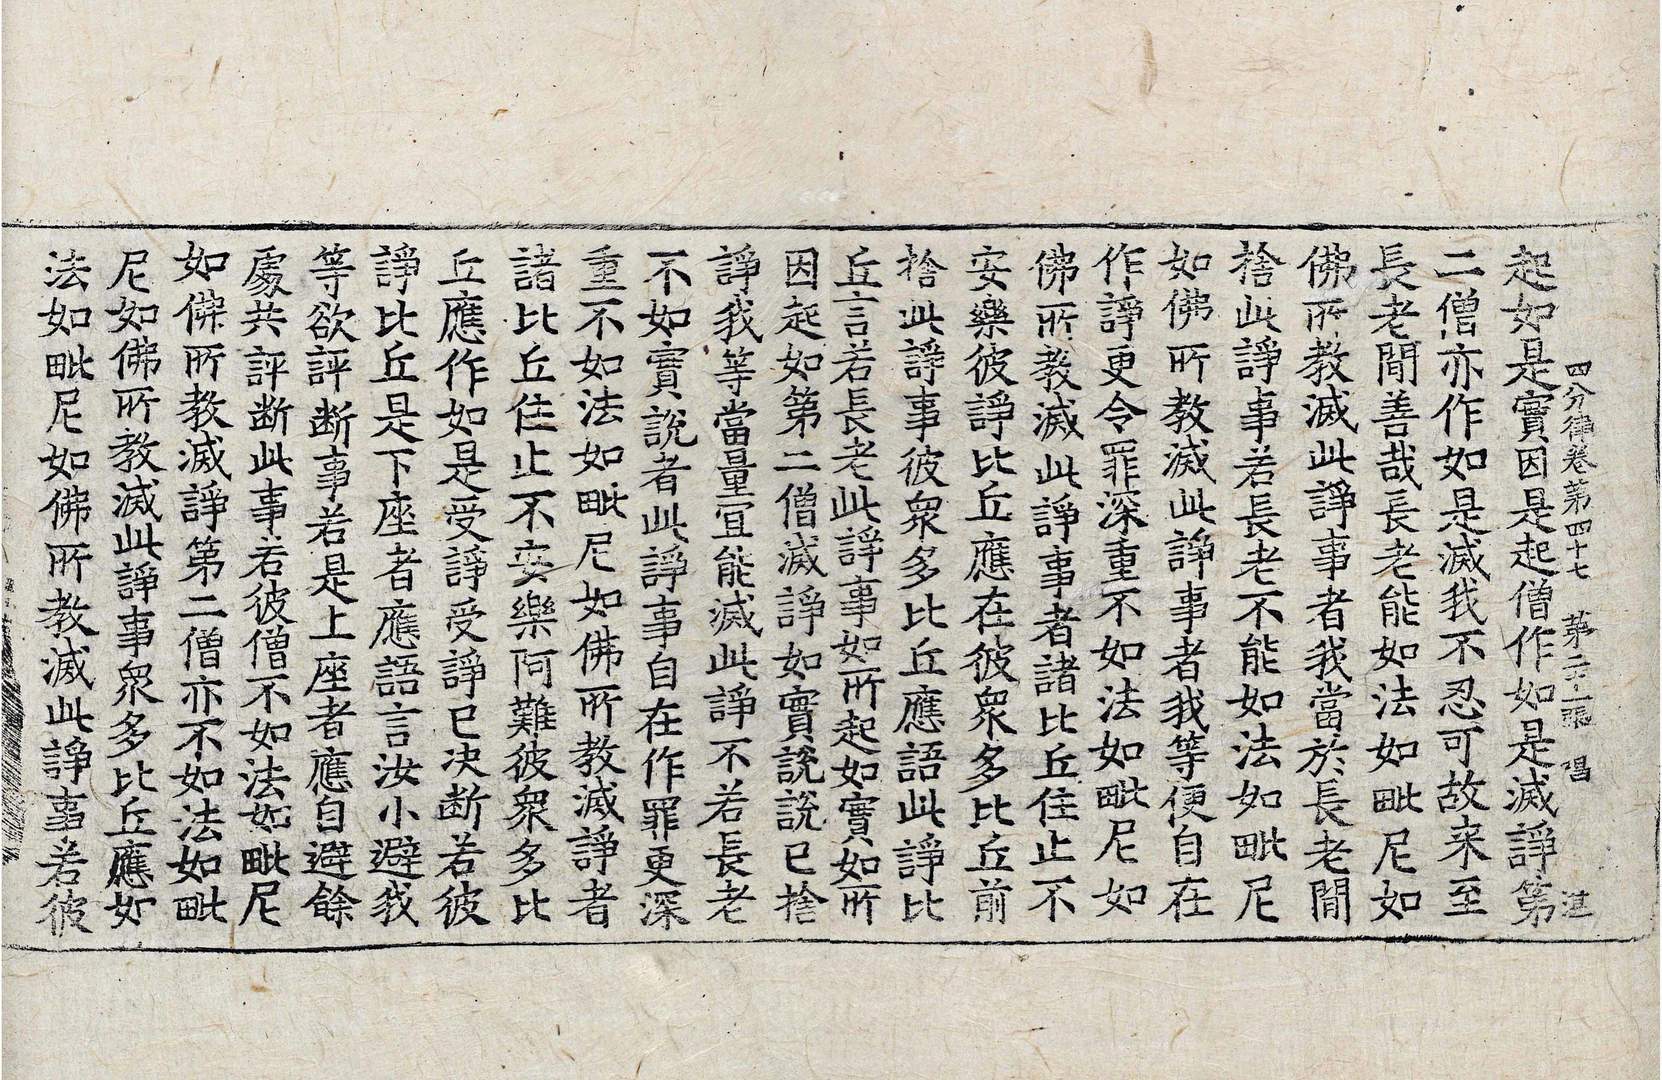 四分律卷第四十七 第二十二張 湛
起如是實因是起僧作如是滅諍第
二僧亦作如是滅我不忍可故来至
長老閒善哉長老能如法如毗尼如
佛所教滅此諍事者我當於長老閒
捨此諍事若長老不能如法如毗尼
如佛所教滅此諍事者我等便自在
作諍更令罪深重不如法如毗尼如
佛所教滅此諍事者諸比丘住止不
安樂彼諍比丘應在彼衆多比丘前
捨此諍事彼衆多比丘應語此諍比
丘言若長老此諍事如所起如實如所
因起如第二僧滅諍如實說說已捨
諍我等當量宜能滅此諍不若長老
不如實說者此諍事自在作罪更深
重不如法如毗尼如佛所教滅諍者
諸比丘住止不安樂阿難彼衆多比
丘應作如是受諍受諍已决断若彼
諍比丘是下座者應語言汝小避我
等欲評断事若是上座者應自避餘
處共評断此事若彼僧不如法如毗尼
如佛所教滅諍第二僧亦不如法如毗
尼如佛所教滅此諍事衆多比丘應如
法如毗尼如佛所教滅此諍事若彼